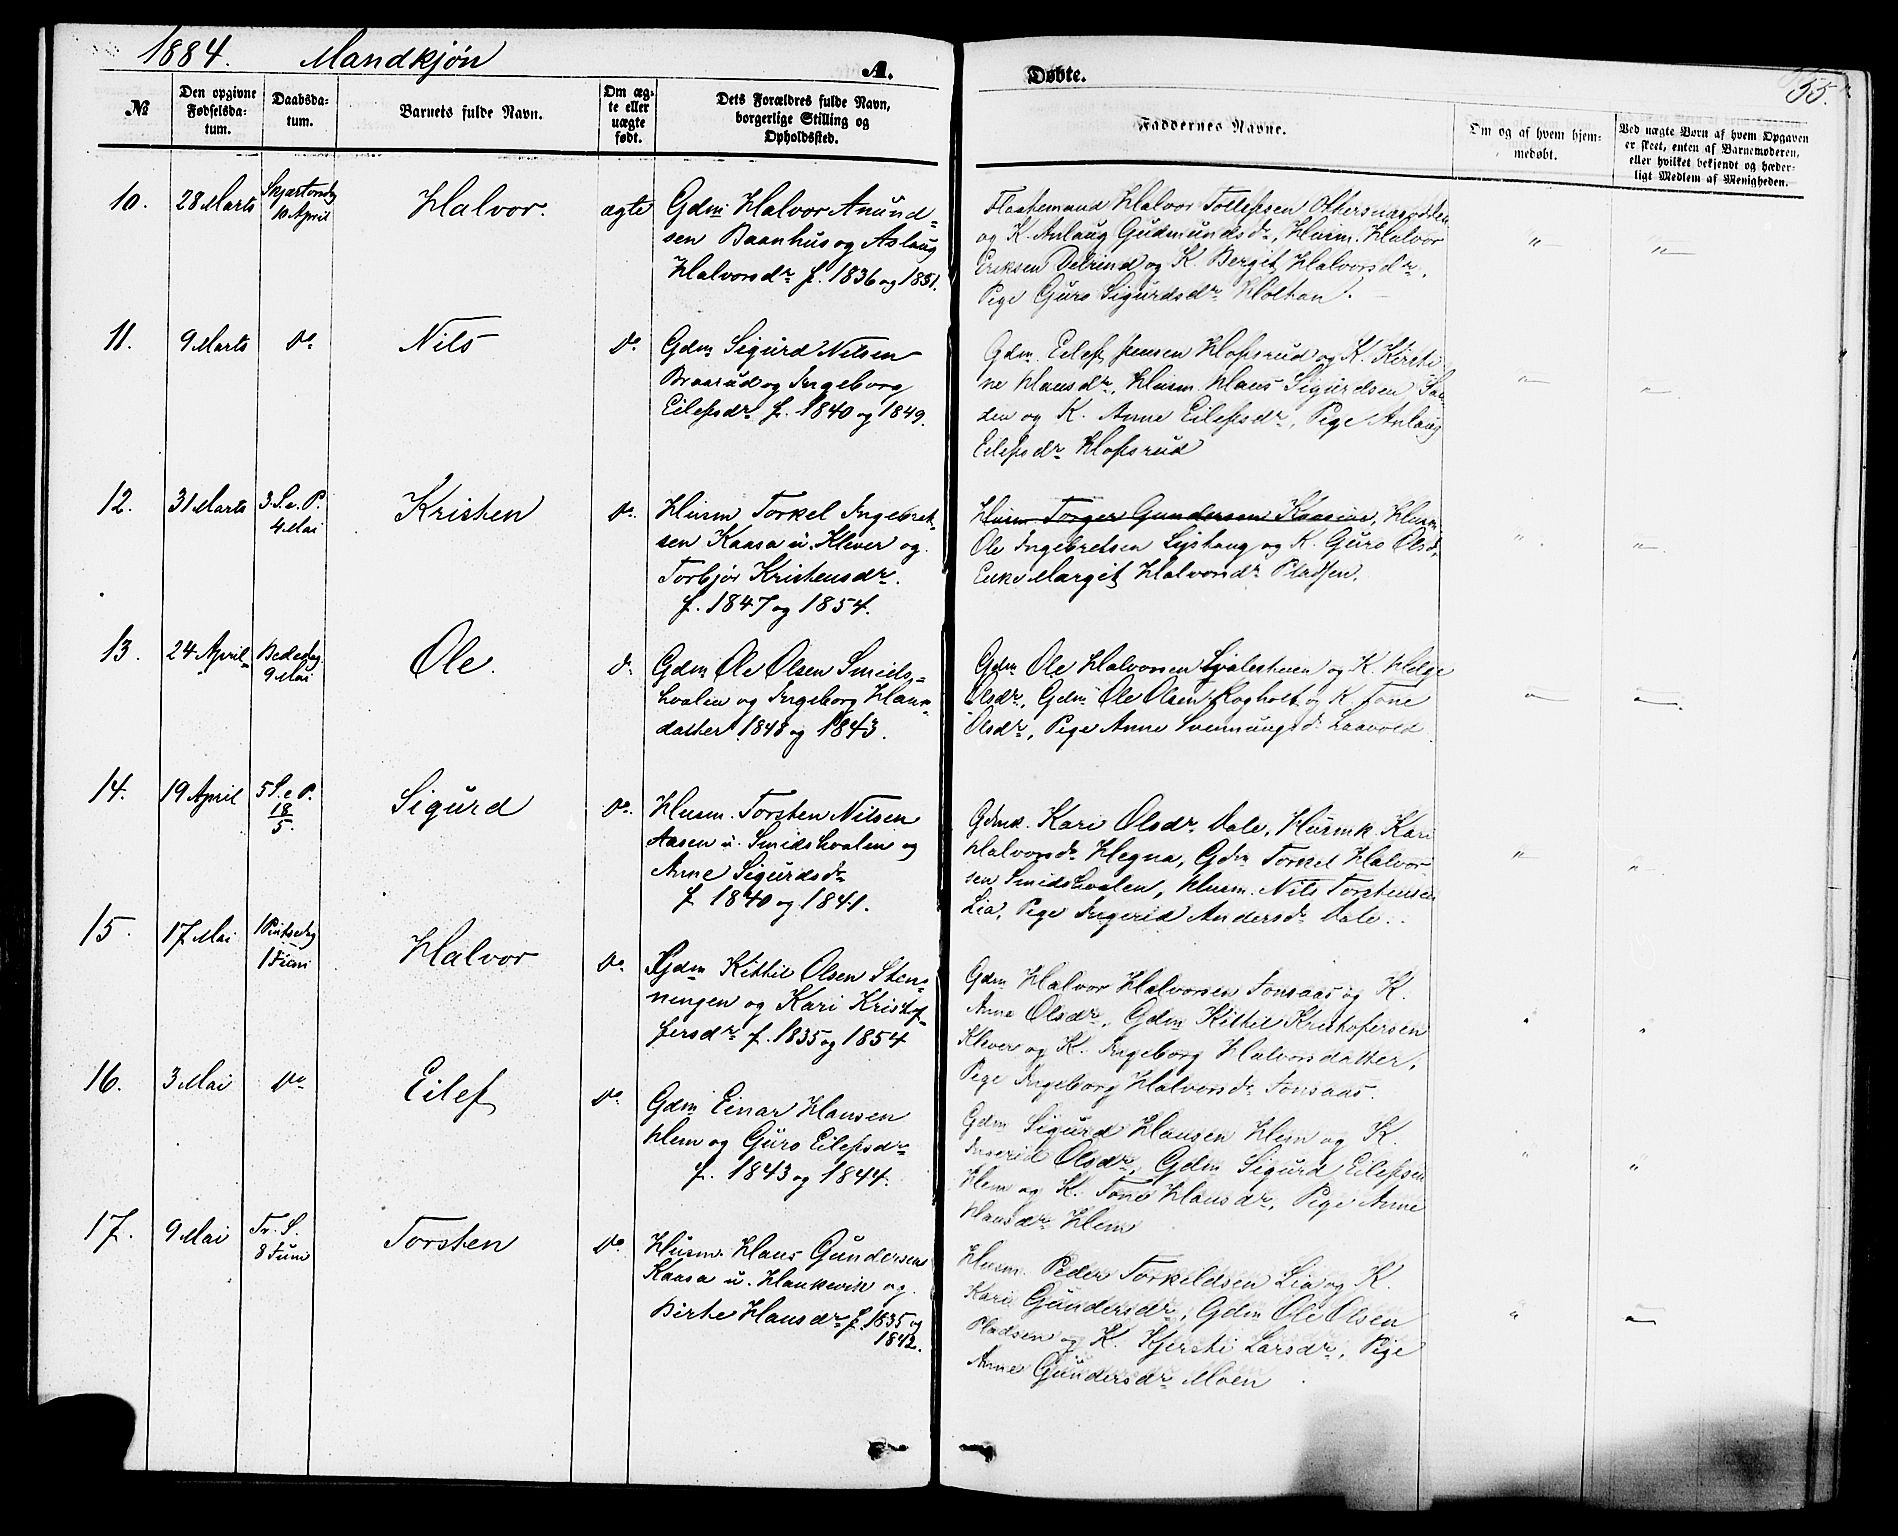 1884. Mandkjøn A. Døbte. 55.
№
Den opgivne Fødselsdatum.
Daabsdatum.
Barnets fulde Navn.
Om ægte eller uægte født.
Dets Forældres fulde Navn, borgerlige Stilling og Opholdssted.
Faddernes Navne.
Om og af hvem hjemmedøbt.
Ved uægte Born af hvem Opgaven er skeet, enten af Barnemoderen, eller hvilket bekjendt og hæderligt Medlem af Menigheden.
10. 28 Marts Skjærtorsdag 10 April Halvor. ægte
Gdm Halvor Amund-
sen Baanhus og Aslaug
Halvorsdr f. 1836 og 1851.
Halvor Tollefsen
og K. Anlaug Gudmundsdr, Husm. Halvor
Eriksen og K. Berget Halvorsdr,
Pige Guro Sigurdsdr Holtan.
" "
11. 9 Marts Do Nils Do
Gdm Sigurd Nilsen
Braarud og Ingeborg
Eilefsdr f. 1840 og 1849.
Gdm. Eilef Jensen Hofsrud og K. Kirsti-
ne Hansdr, Husm. Hans Sigurdsen
den og K. Anne Eilefsdr, Pige Anlaug
Eilefsdr Hofsrud
" "
12. 31 Marts 3 S. e. P. 4 Mai Kristen Do
Husm Torkel Ingebret-
sen Kaasa u. Klever og
Torbjør Kristensdr.
f. 1847 og 1854.
Husm Torger Gundersen, Husm.
Ole Ingebretsen Lyshaug og K. Guro Olsdr
Enke Margit Halvorsdr Pladsen.
" "
13. 24 April Bededag 9 Mai Ole. Do
Gdm Ole Olsen Smids-
hvalen og Ingeborg Hans-
datter 1848 og 1843.
Gdm Ole Halvorsen og K. Helge
Olsdr, Gdm Ole Olsen Rogholt og K. Tone
Olsdr, Pige Anne Svennungsdr Laavold
" "
14. 19 April 5 S. e P. 18/5. Sigurd Do
Husm. Torsten Nilsen
Aasen u. Smidshvalen og
Anne Sigurdsdr
f 1840 og 1841.
Gdmk. Kari Olsdr Dale, Husmk. Kari
Halvorsdr Hegna, Gdm Torkel Halvor-
sen Smidshvalen, Husm. Nils Torstensen
Lia, Pige Ingerid Andersdr Dale.
" "
15. 17 Mai 1 Pintsedag 1 Juni Halvor Do
Gdm Kittil Olsen Sten-
ningen og Kari Kristof-
fersdr f. 1835 og 1854
Gdm Halvor Halvorsen Tonsaas og K.
Anne Olsdr, Gdm Kittil Kristofersen
Klever og K. Ingeborg Halvorsdatter,
Pige Ingeborg Halvorsdr Tonsaas.
" "
16. 3 Mai Do Eilef Do
Gdm Einar Hansen
Hem og Guro Eilefsdr
f. 1843 og 1844.
Gdm Sigurd Hansen Hem og K.
Ingerid Olsdr, Gdm Sigurd Eilefsen
Hem og K. Tone Hansdr, Pige Anne
Hansdr Hem
" "
17. 9 Mai Tr. S. 8 Juni Torsten Do
Husm. Hans Gundersen
Kaasa u. Haukevik og
Birte Hansdr f. 1835 og
1842.
Husm. Peder Torkeldsen Lia og K.
Kari Gundersdr, Gdm Ole Olsen
Pladsen og K. Kjersti Larsdr, Pige
Anne Gundersdr Moen
" "